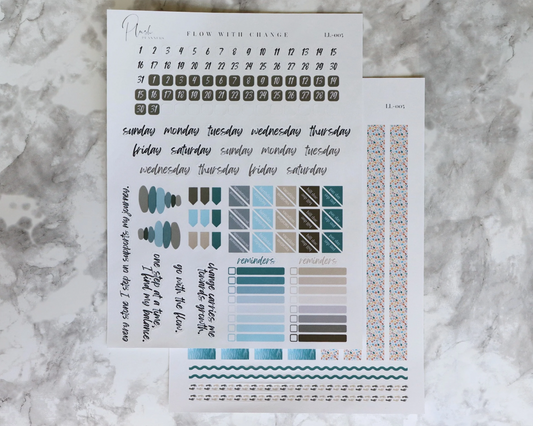 Plush
FLOW WITH CHANGE
LL-005
1 2 3 4 5 6 7 8 9 10 11 12 13 14 15
16 17 18 19 20 21 22 23 24 25 26 27 28 29 30
31 1 2 3 4 5 6 7 8 9 10 11 12 13 14
15 16 17 18 19 20 21 22 23 24 25 26 27 28 29
30 31
sunday monday tuesday wednesday thursday
friday saturday sunday monday tuesday
wednesday thursday friday saturday
reminders reminders
every step I take supports my journey.
one step at a time,
I find my balance.
go with the flow.
change carries me
towards growth.
LL-005